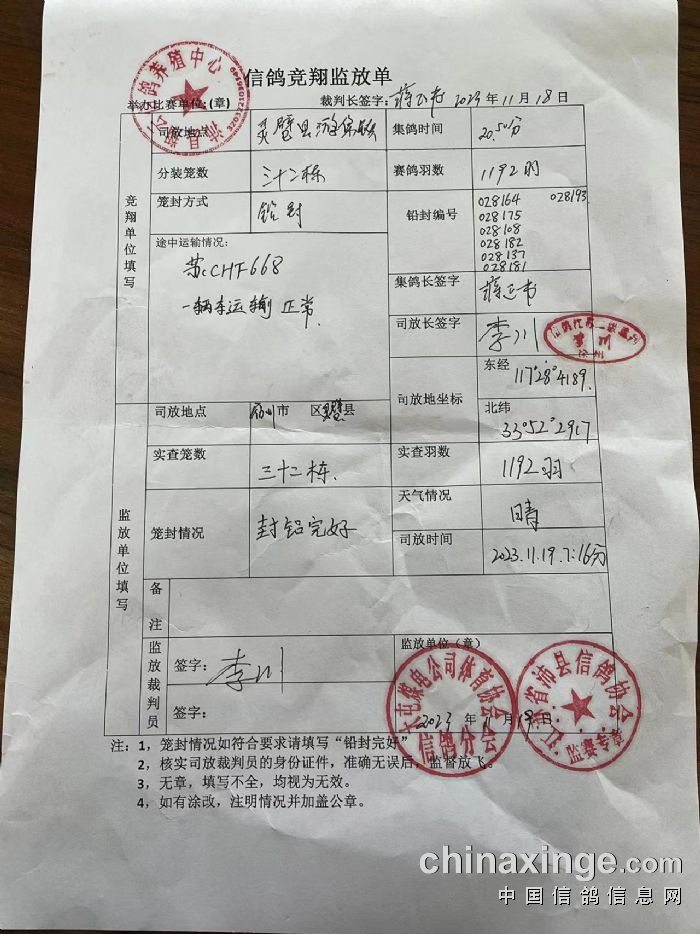 信鸽竞翔监放单
举办比赛单位:(章) 裁判长签字: 2023年11月18日
鸽养殖中心
沛县
竞翔单位填写
司放地点 灵璧县 集鸽时间 20.50分
分装笼数 三十二栋 赛鸽羽数 1192羽
笼封方式 铅封 铅封编号 028164 028193
028175
028108
028182
028137
028181
途中运输情况:
苏CHF668
一辆车运输 正常.
集鸽长签字
司放长签字 李川
李川
徐州
司放地坐标 东经 117°28°4189.
北纬 33°52°2917
监放单位填写
司放地点 宿州市 区灵璧县
实查笼数 三十二栋. 实查羽数 1192羽
笼封情况 封铅完好 天气情况 晴
司放时间 2023.11.19.7:16分
备注
监放裁判员 签字: 李川
签字:
监放单位(章)
屯煤电公司体育协会
信鸽分会
江苏省沛县信鸽协会
监赛专章
2023年11月19日
注:1,笼封情况如符合要求请填写“铅封完好”
2,核实司放裁判员的身份证件,准确无误后,监督放飞。
3,无章,填写不全,均视为无效。
4,如有涂改,注明情况并加盖公章。
chinaxinge.com
中国信鸽信息网